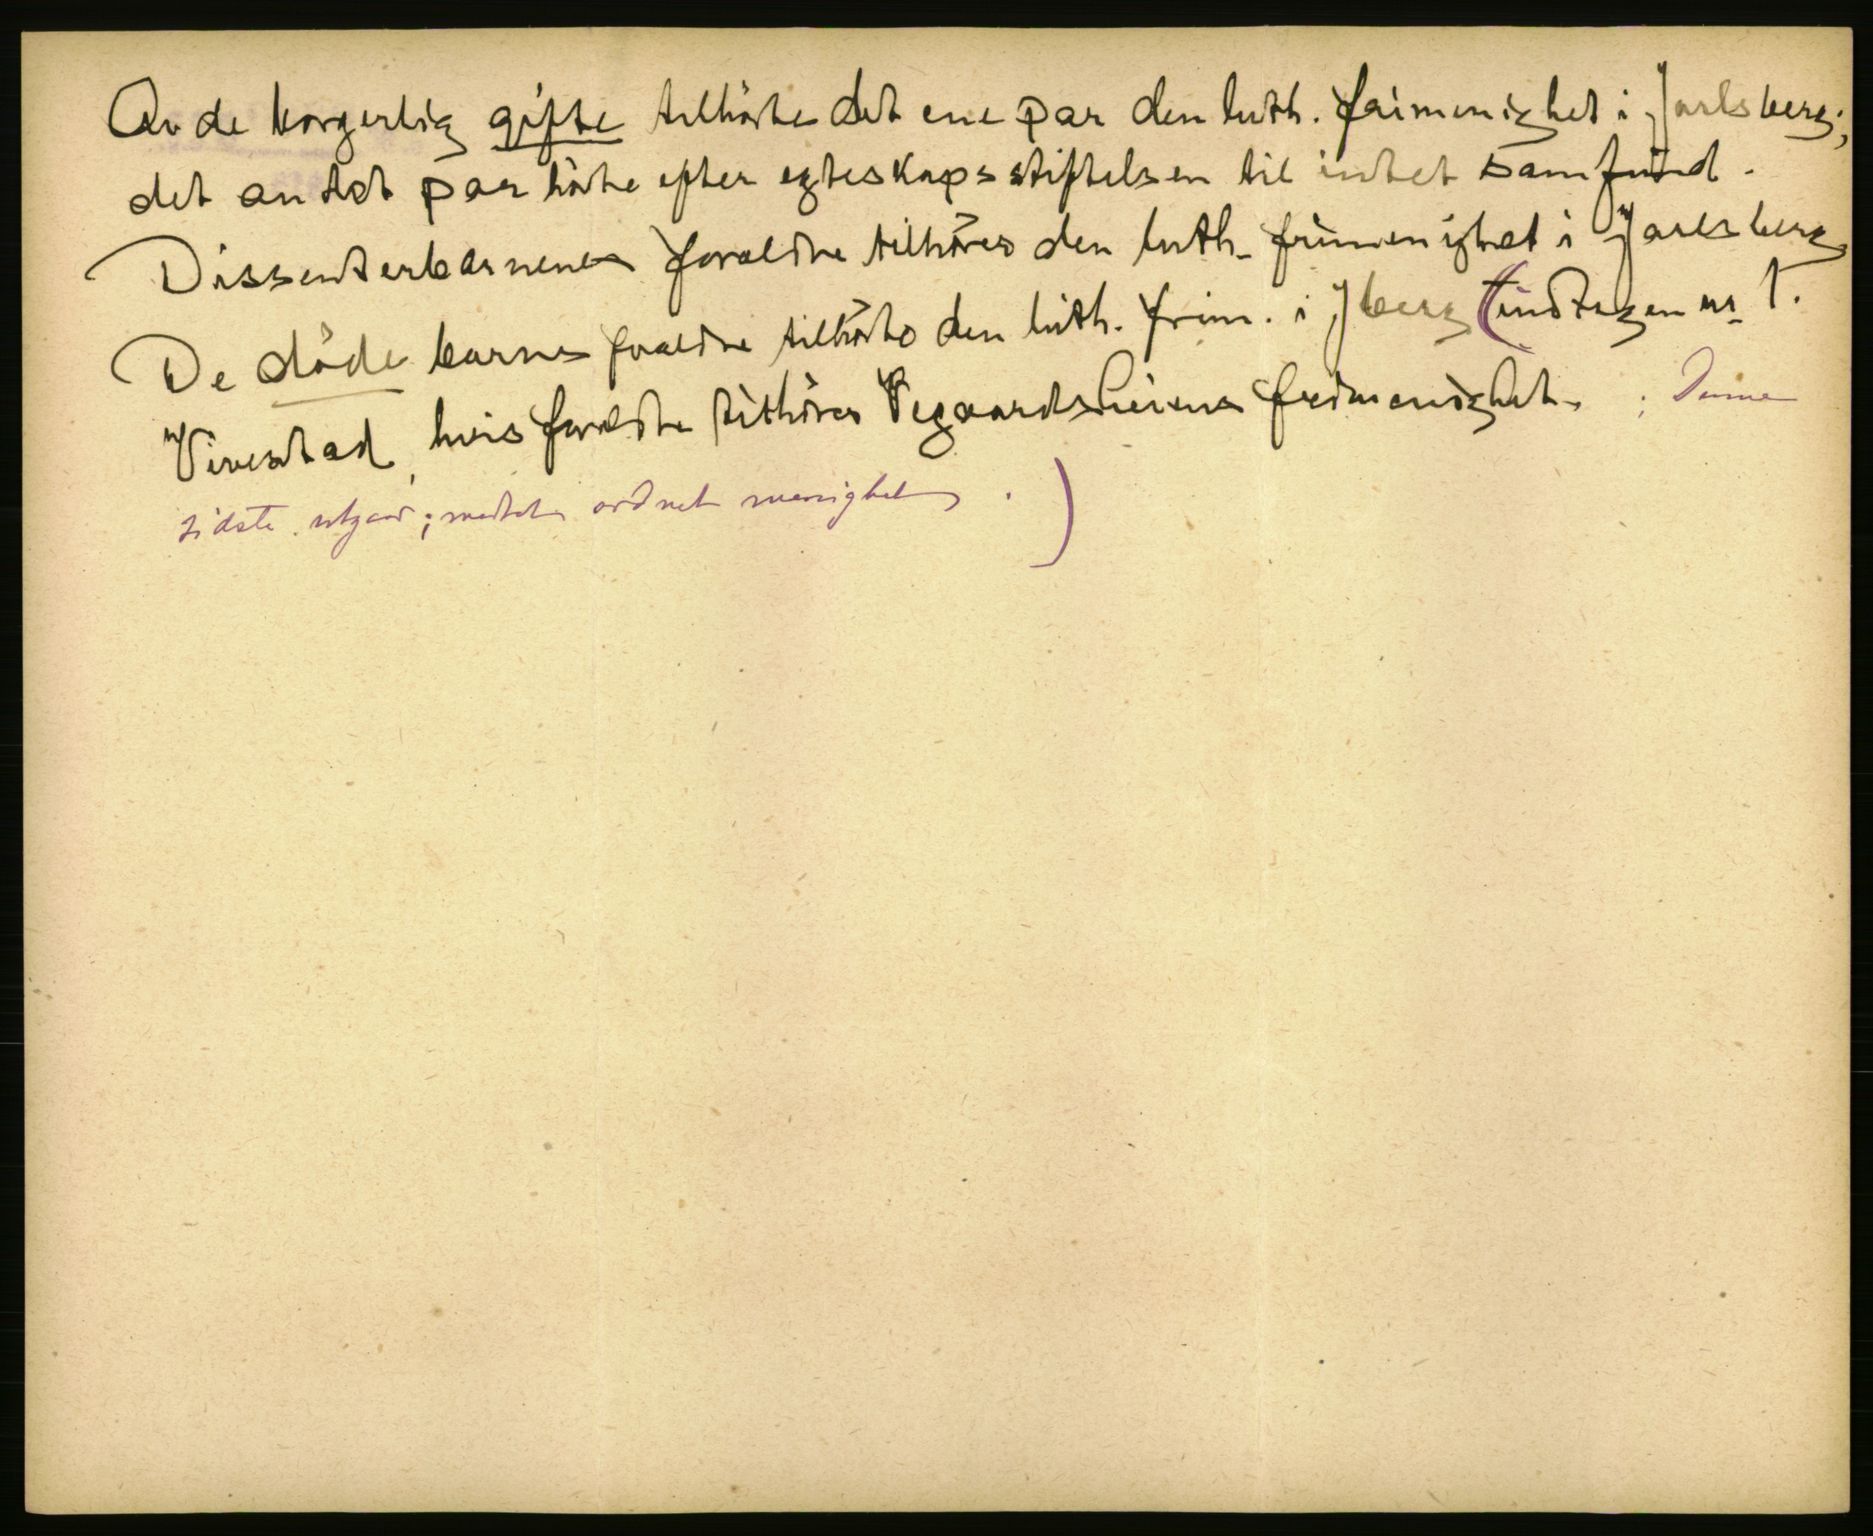 Av de borgerlig gifte tilhörte det ene par den luth. frimenighet i Jarlsberg;
det andet par hörte efter egteskapsstiftelsen til intet samfund.
Dissenterbarnenes forældre tilhörer den luth. frimenighet i Jarlsberg
De döde barns forældre tilhörte den luth. frim. i Jberg (undtagen nr 1.
Vivestad, hvis forældre tilhörer Vegaardsheiens frimenighet. ; Denne
sidste utgaar; ordnet menighet.)